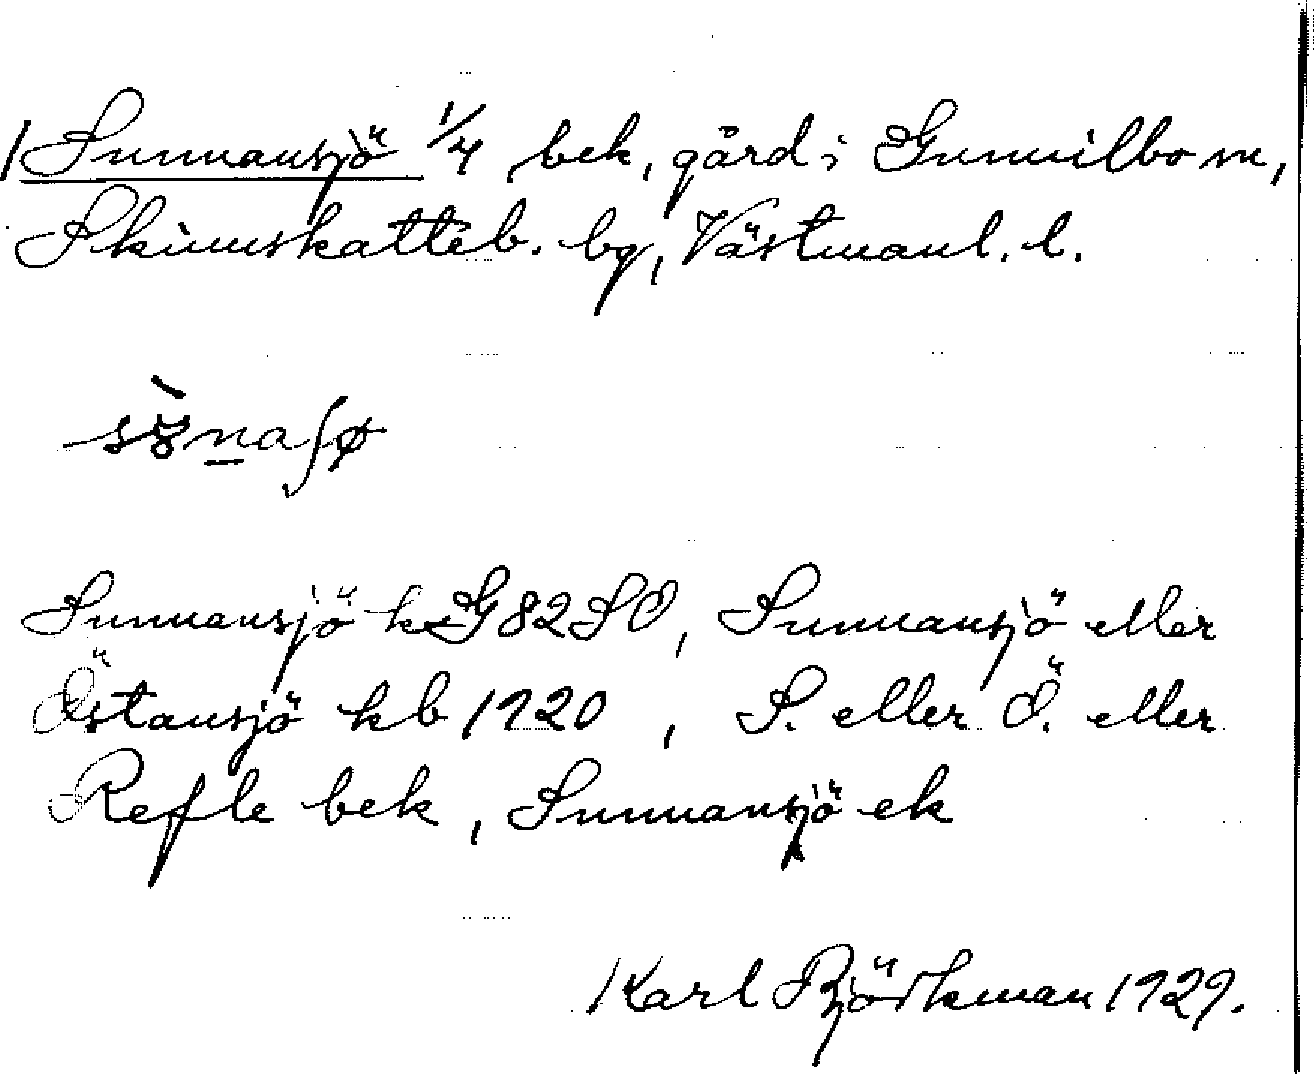 Sunnansjö 1/4 bek, gård i Gunnilbo sn,
Skinnskatteb. bg, Västmanl. l.
Sunnansjö k G82SO, Sunnansjö eller
Östansjö kb 1920, S. eller Ö. eller
Refle bek, Sunnansjö ek
Karl Björkman 1929.